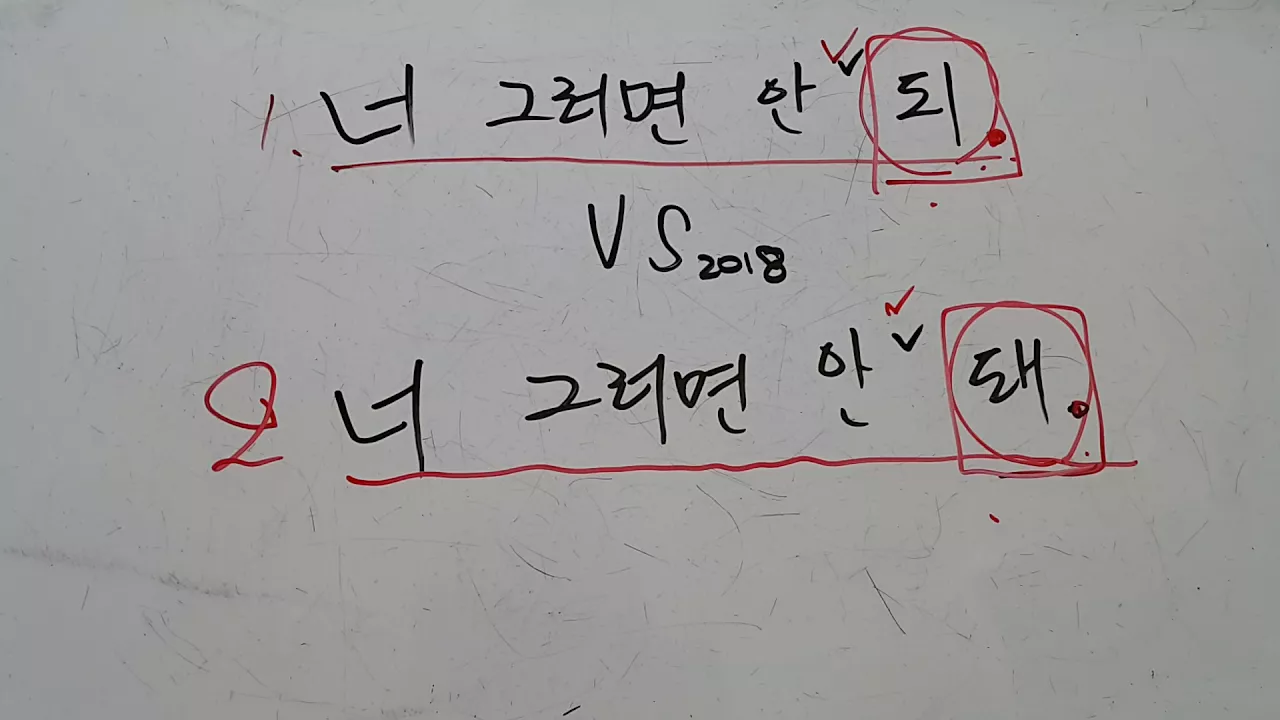 1. 너 그러면 안 되.
VS 2018
2 너 그러면 안 돼.